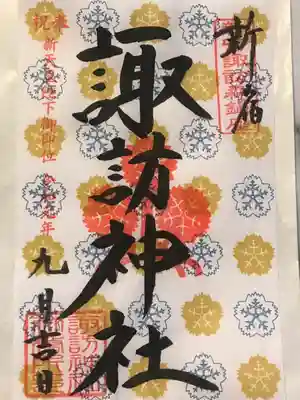 新宿
諏訪神社
奉祝
新天皇陛下御即位 令和元年
九月吉日